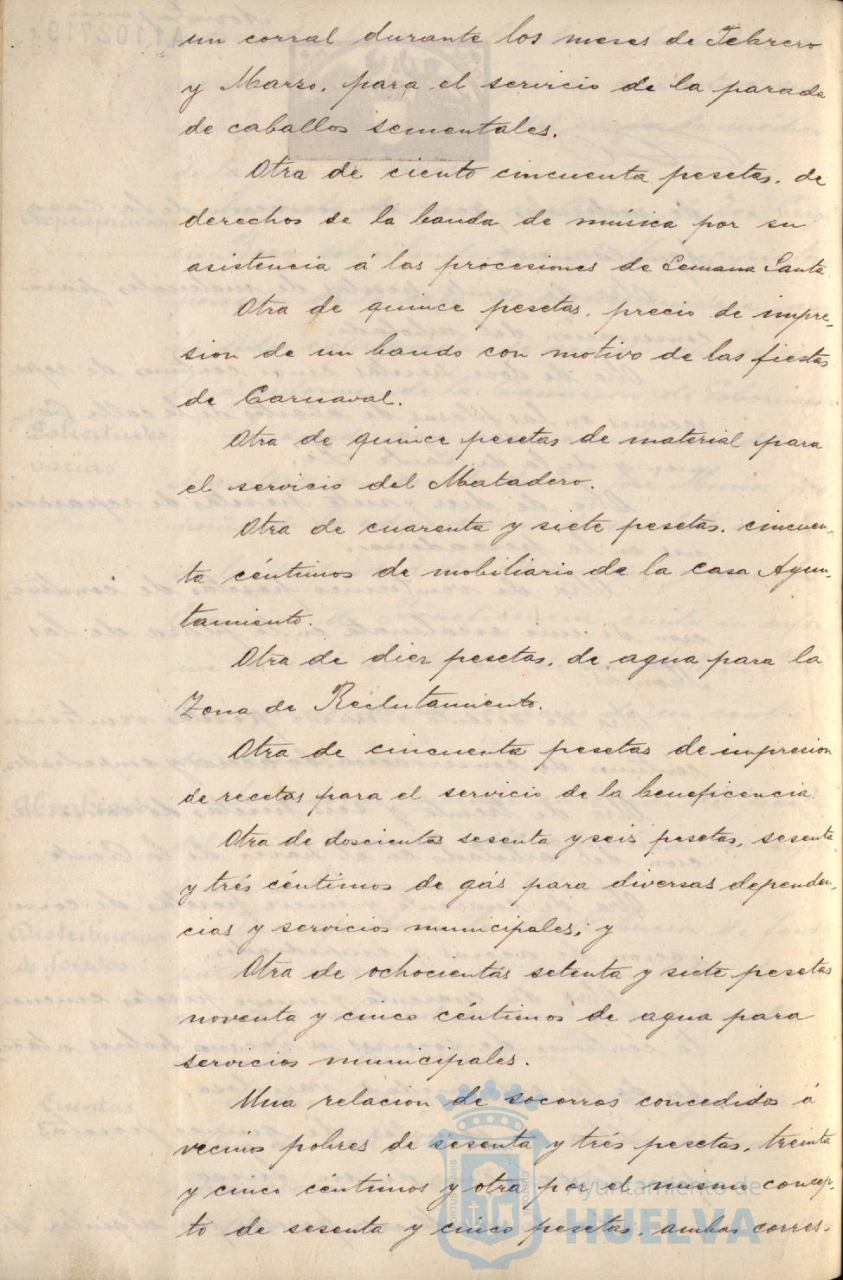 un corral durante los meses de Febrero
y Marzo, para el servicio de la parada
de caballos sementales.
Otra de ciento cincuenta pesetas, de
derechos de la banda de música por su
asistencia á las procesiones de Semana Santa
Otra de quince pesetas, precio de impre-
sion de un bando con motivo de las fiestas
de Carnaval.
Otra de quince pesetas de material para
el servicio del Matadero.
Otra de cuarenta y siete pesetas, cincuen-
ta céntimos de mobiliario de la casa Ayun-
tamiento.
Otra de diez pesetas, de agua para la
Zona de Reclutamiento.
Otra de cincuenta pesetas de impresion
de recetas para el servicio de la beneficencia.
Otra de doscientas sesenta y seis pesetas, sesenta
y trés céntimos de gás para diversas dependen-
cias y servicios municipales; y
Otra de ochocientas setenta y siete pesetas
noventa y cinco céntimos de agua para
servicios municipales.
Una relacion de socorros concedidos á
vecinos pobres de sesenta y trés pesetas, treinta
y cinco céntimos y otra por el mismo concep-
to de sesenta y cinco pesetas, ambas corres-
Ayuntamiento de
HUELVA